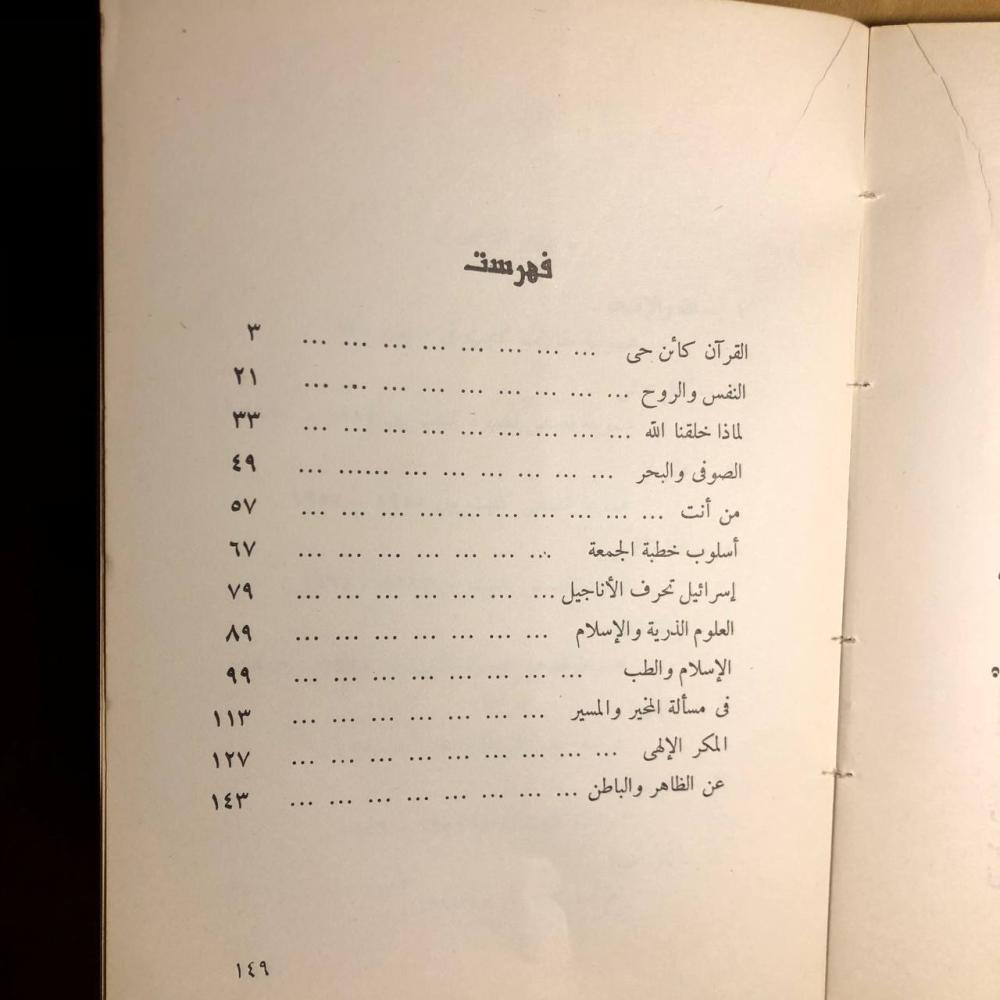 فهرست
القرآن كائن حى ... ... ... ... ... ... ... ... ٣
النفس والروح ... ... ... ... ... ... ... ... ... ٢١
لماذا خلقنا الله ... ... ... ... ... ... ... ... ... ٣٣
الصوفى والبحر ... ... ... ... ... ...... ... ٤٩
من أنت ... ... ... ... ... ... ... ... ... ... ٥٧
أسلوب خطبة الجمعة ... ... ... ... ... ... ... ٦٧
إسرائيل تحرف الأناجيل ... ... ... ... ... ... ... ٧٩
العلوم الذرية والإسلام ... ... ... ... ... ... ... ٨٩
الإسلام والطب ... ... ... ... ... ... ... ... ٩٩
فى مسألة المخير والمسير ... ... ... ... ... ... ... ١١٣
المكر الإلهى ... ... ... ... ... ... ... ... ... ١٢٧
عن الظاهر والباطن ... ... ... ... ... ... ... ... ١٤٣
١٤٩